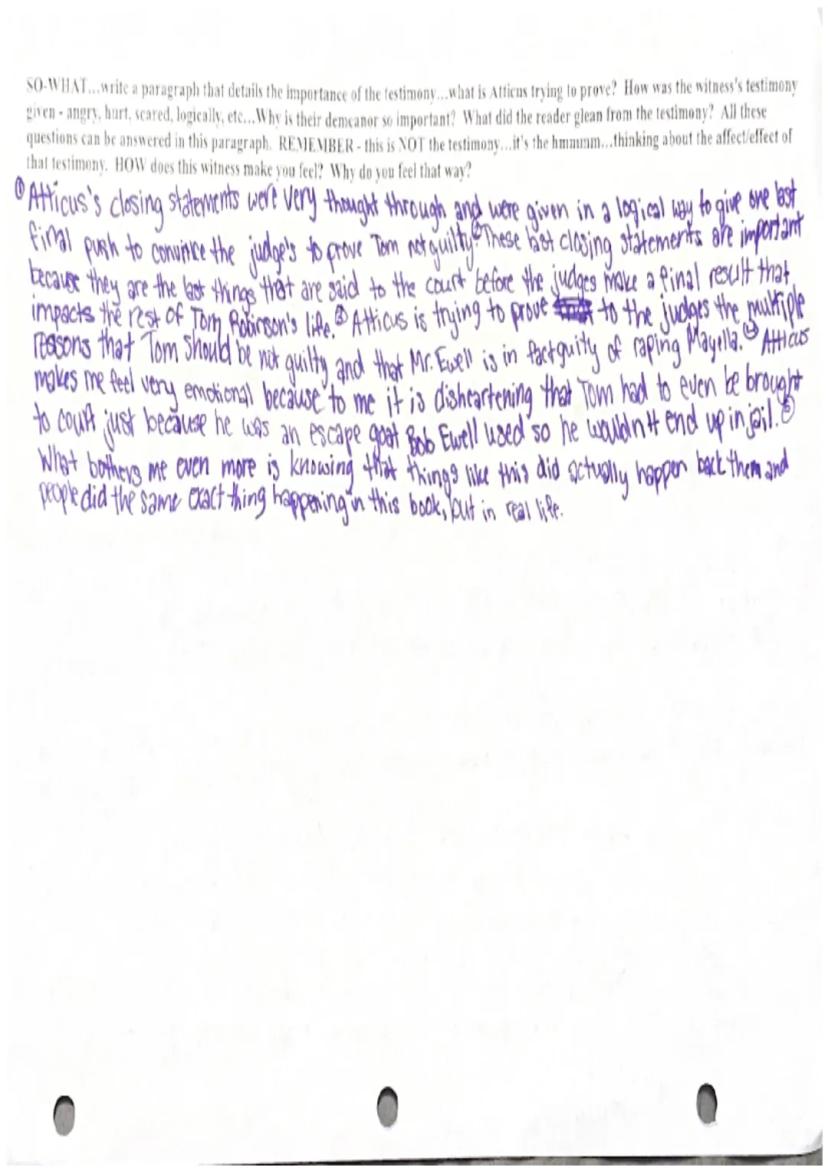 SO-WHAT...write a paragraph that details the importance of the testimony...what is Atticus trying to prove? How was the witness's testimony
given - angry, hurt, scared, logically, etc...Why is their demeanor so important? What did the reader glean from the testimony? All these
questions can be answered in this paragraph. REMEMBER - this is NOT the testimony...it's the hmmmm...thinking about the affect/effect of
that testimony. HOW does this witness make you feel? Why do you feel that way?
① Atticus's closing statements were very thought through and were given in a logical way to give one last
final push to convince the judge's to prove Tom not guilty. ② These last closing statements are important
because they are the last things that are said to the court before the judges make a final result that
impacts the rest of Tom Robinson's life. ③ Atticus is trying to prove to the judges the multiple
reasons that Tom should be not guilty and that Mr. Ewell is in fact guity of raping Mayella. ④ Atticus
makes me feel very emotional because to me it is disheartening that Tom had to even be brought
to court just because he was an escape goat Bob Ewell used so he wouldn't end up in jail. ⑤
What bothers me even more is knowing that things like this did actually happen back then and
people did the same exact thing happening in this book, but in real life.